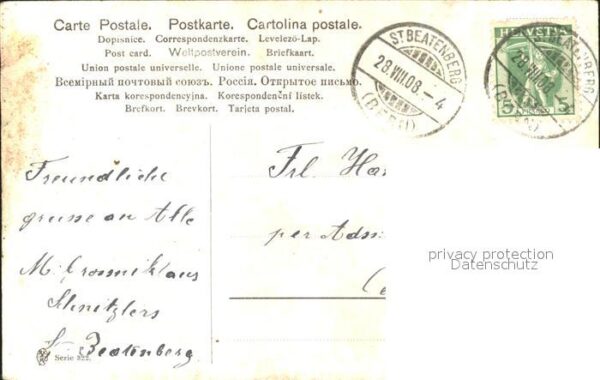 Carte Postale. Postkarte. Cartolina postale.
Dopisnice. Correspondenzkarte. Levelező-Lap.
Post card. Weltpostverein. Briefkaart.
Union postale universelle. Unione postale universale.
Всемірный почтовый союзъ. Россія. Открытое письмо.
Karta korespondencyjna. Korespondenční lístek.
Brefkort. Brevkort. Tarjeta postal.
ST BEATENBERG
28.VIII.08 - 4
(BERN)
HELVETIA
5
28.VIII.08
Freundliche
grüsse an Alle
M.
Schnitzlers
St. Beatenberg
Serie 322.
Frl.
per
privacy protection
Datenschutz